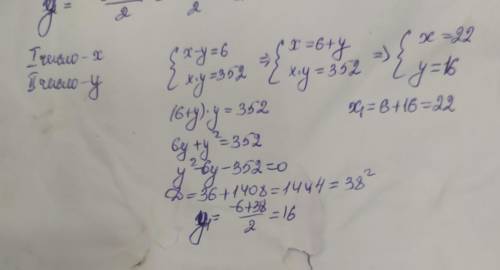 y = 2 2
I число - x { x-y=6 x·y=352 => { x=6+y x·y=352 => { x=22 y=16
II число - y
(6+y)·y=352 x₁=6+16=22
6y+y²=352
y²-6y-352=0
D=36+1408=1444=38²
y₁= -6+38/2 =16